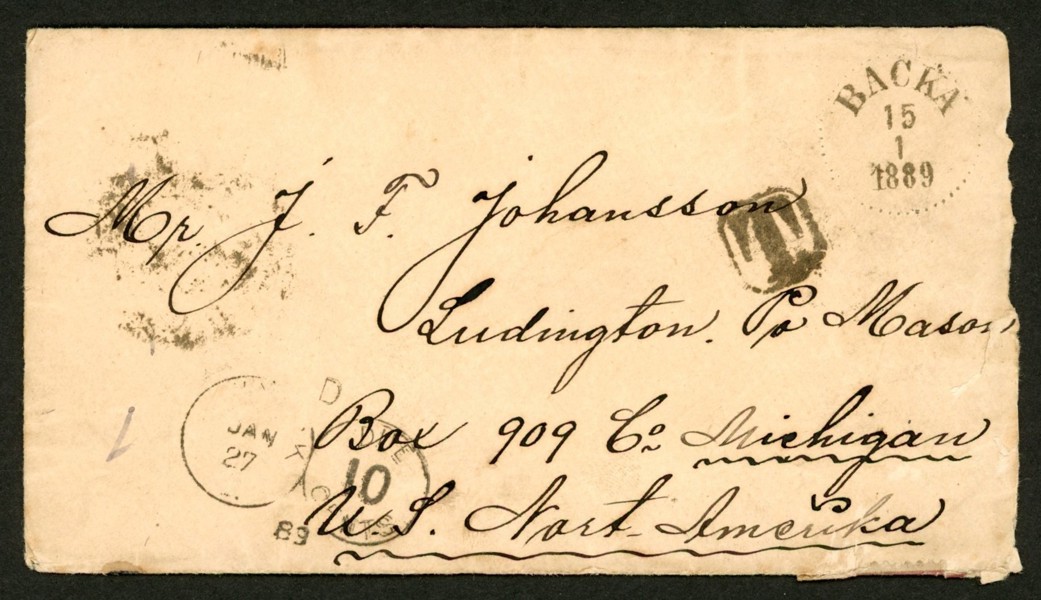 BACKA
15
1
1889
Mr. J. F. Johansson
T
Ludington. Po Mason
Box 909 Co Michigan
U. S. Nort Amerika
JAN
27
89
DUE
10
CENTS